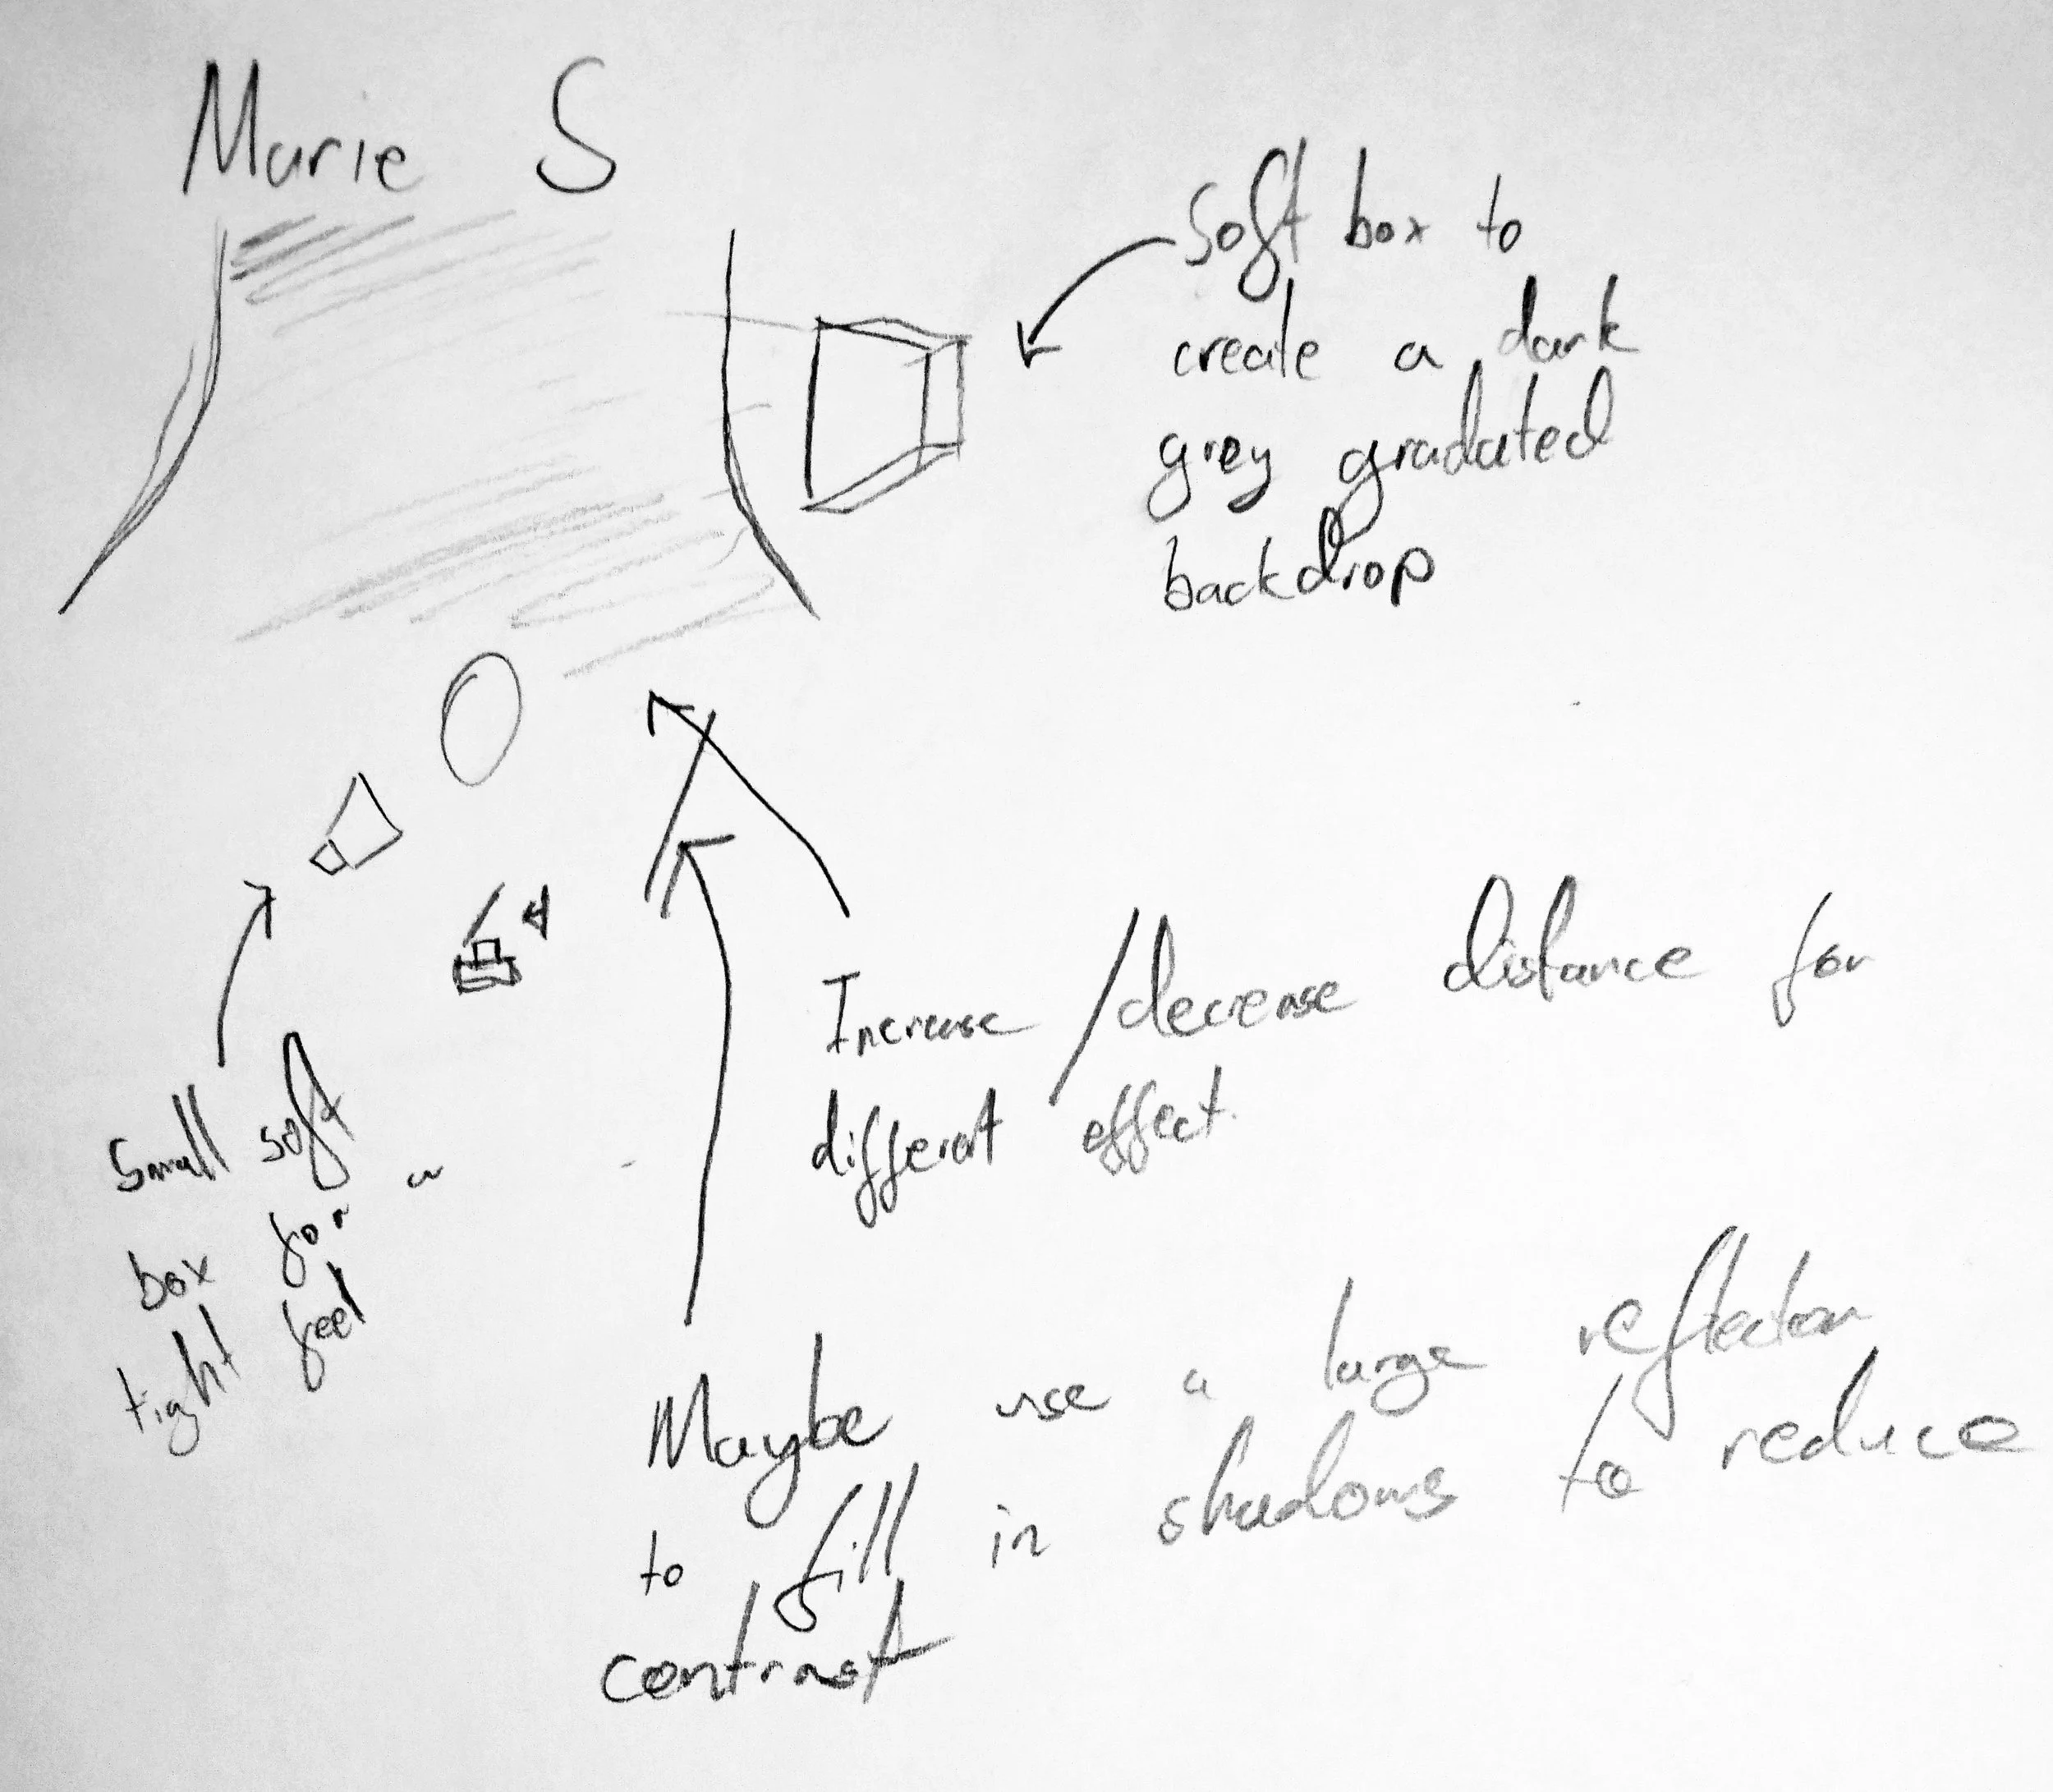 Marie S
Soft box to
create a dark
grey graduated
backdrop
Increase / decrease distance for
different effect.
Small soft
box for a
tight feel
Maybe use a large reflector
to fill in shadows to reduce
contrast